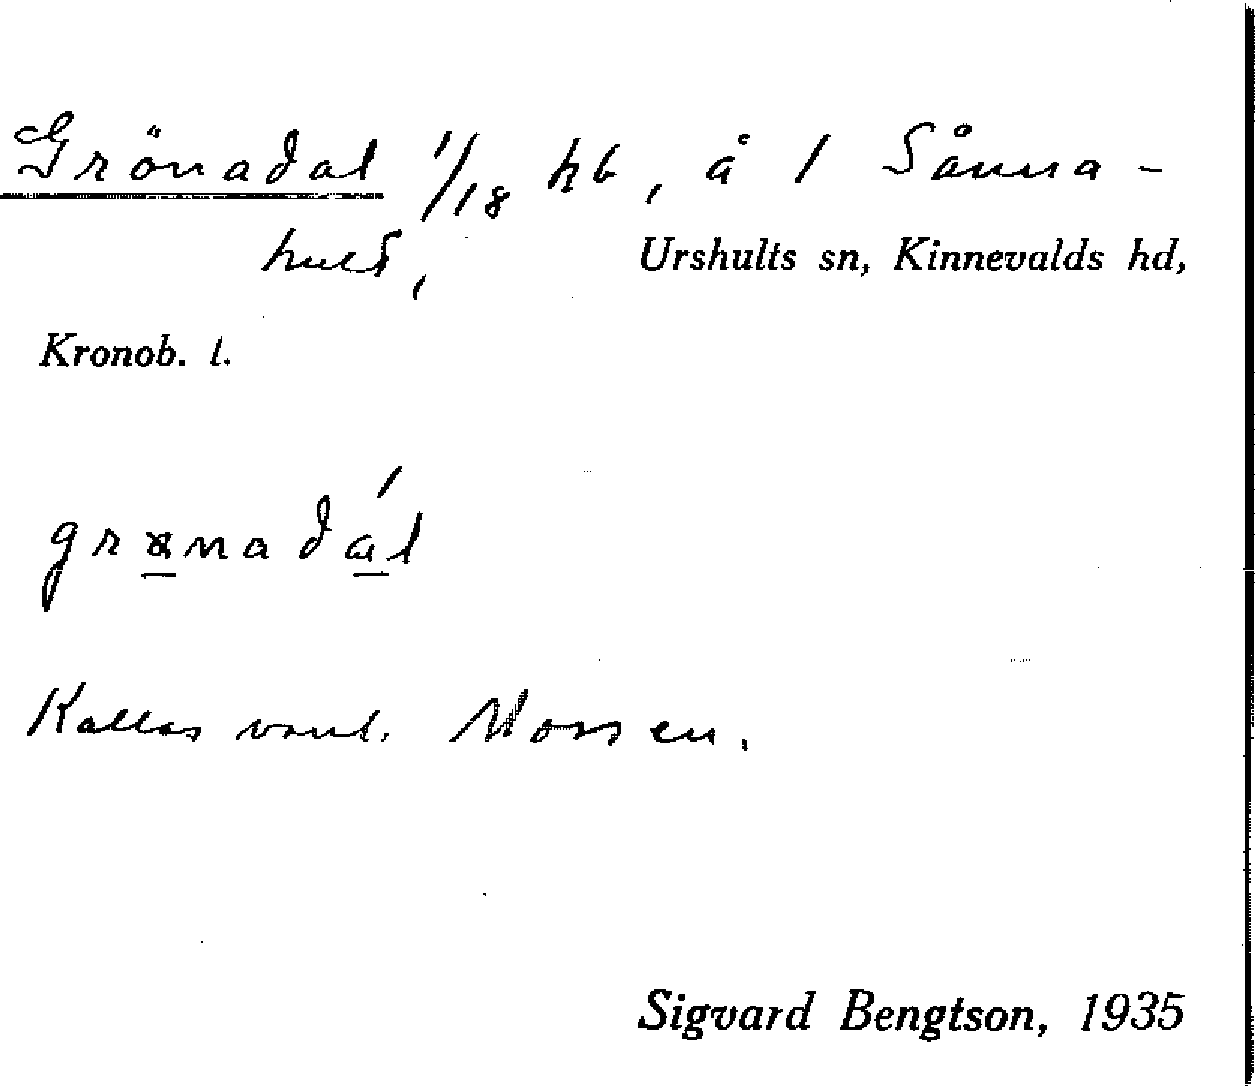 Grönadal 1/18 hb, å 1 Sånna-
hult, Urshults sn, Kinnevalds hd,
Kronob. l.
grønadál
Kallas vanl. Mossen.
Sigvard Bengtson, 1935